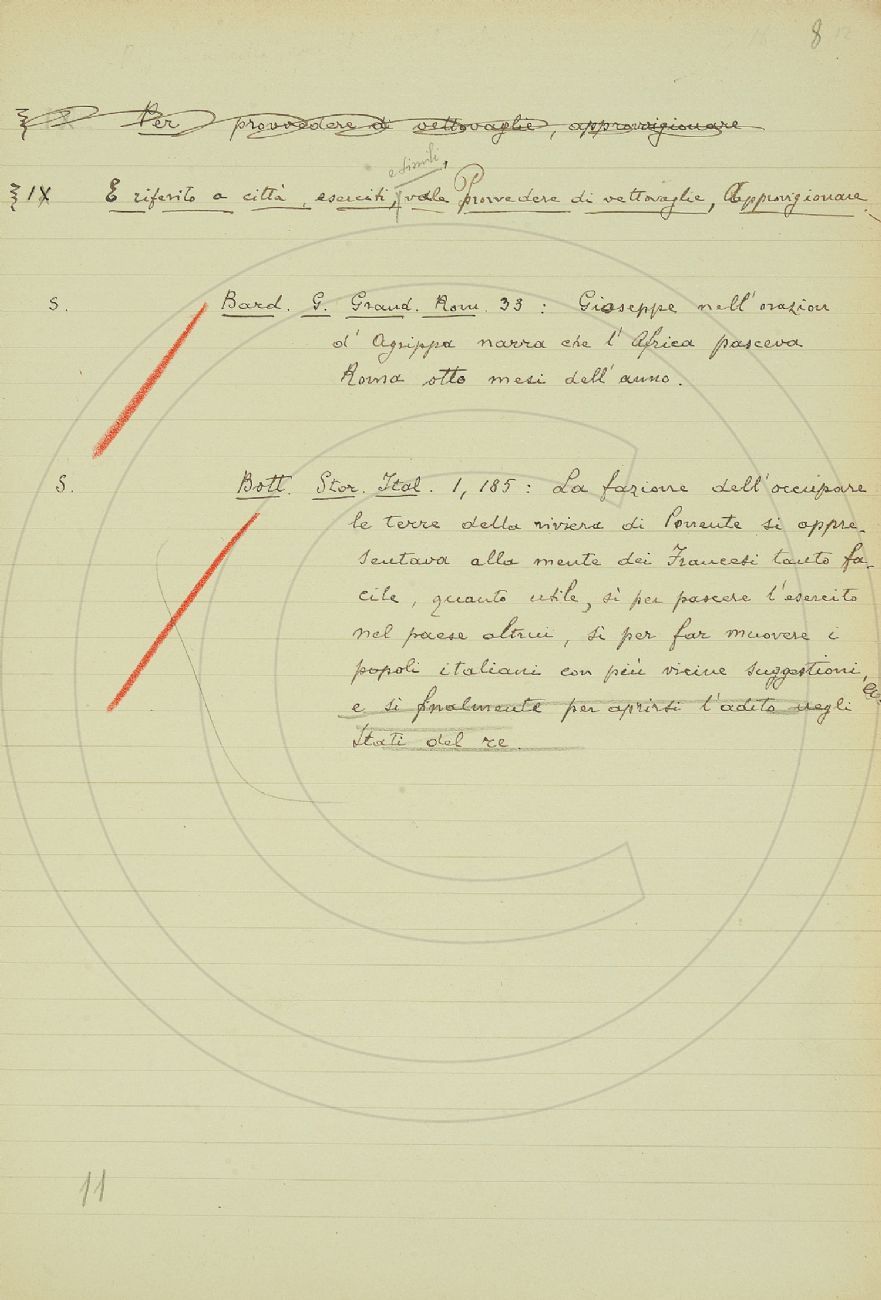 8 12
§ X Per provvedere di vettovaglie, approvvigionare
e simili,
§ IX E riferito a città, eserciti, vale Provvedere di vettovaglie, Approvigionare.
S. Bard. G. Grand. Rom. 33 : Gioseppe nell' orazion
d' Agrippa narra che l' Africa pasceva
Roma otto mesi dell' anno.
S. Bott. Stor. Ital. 1, 185 : La fazione dell'occupare
le terre della riviera di Ponente si appre-
sentava alla mente dei Francesi tanto fa-
cile, quanto utile, sì per pascere l'esercito
nel paese altrui, sì per far muovere i
popoli italiani con più vicine suggestioni,
e sì finalmente per aprirsi l'adito negli
Stati del re.
11